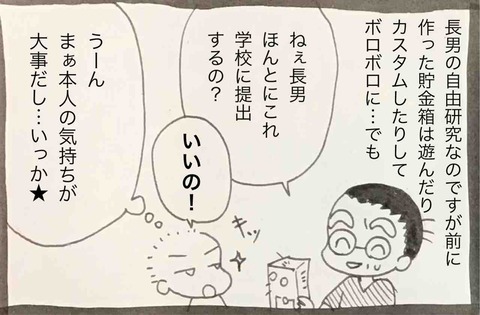 長男の自由研究なのですが前に
作った貯金箱は遊んだり
カスタムしたりして
ボロボロに…でも
ねぇ長男
ほんとにこれ
学校に提出
するの？
いいの！
キッ
うーん
まぁ本人の気持ちが
大事だし…いっか★